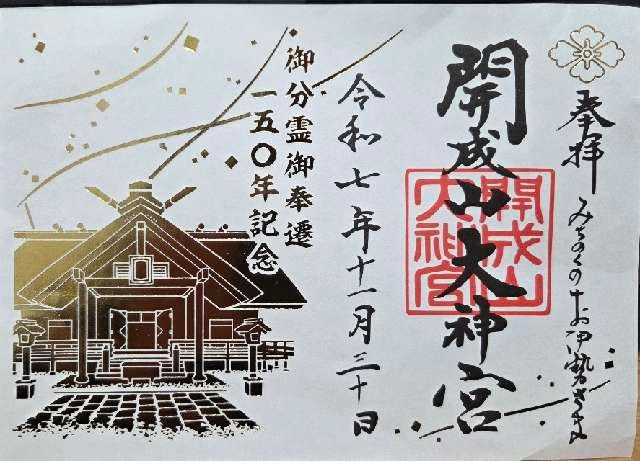 奉拝
みちのくのお伊勢さま
開成山大神宮
開成山
大神宮
令和七年十一月三十日
御分霊御奉遷
一五〇年記念